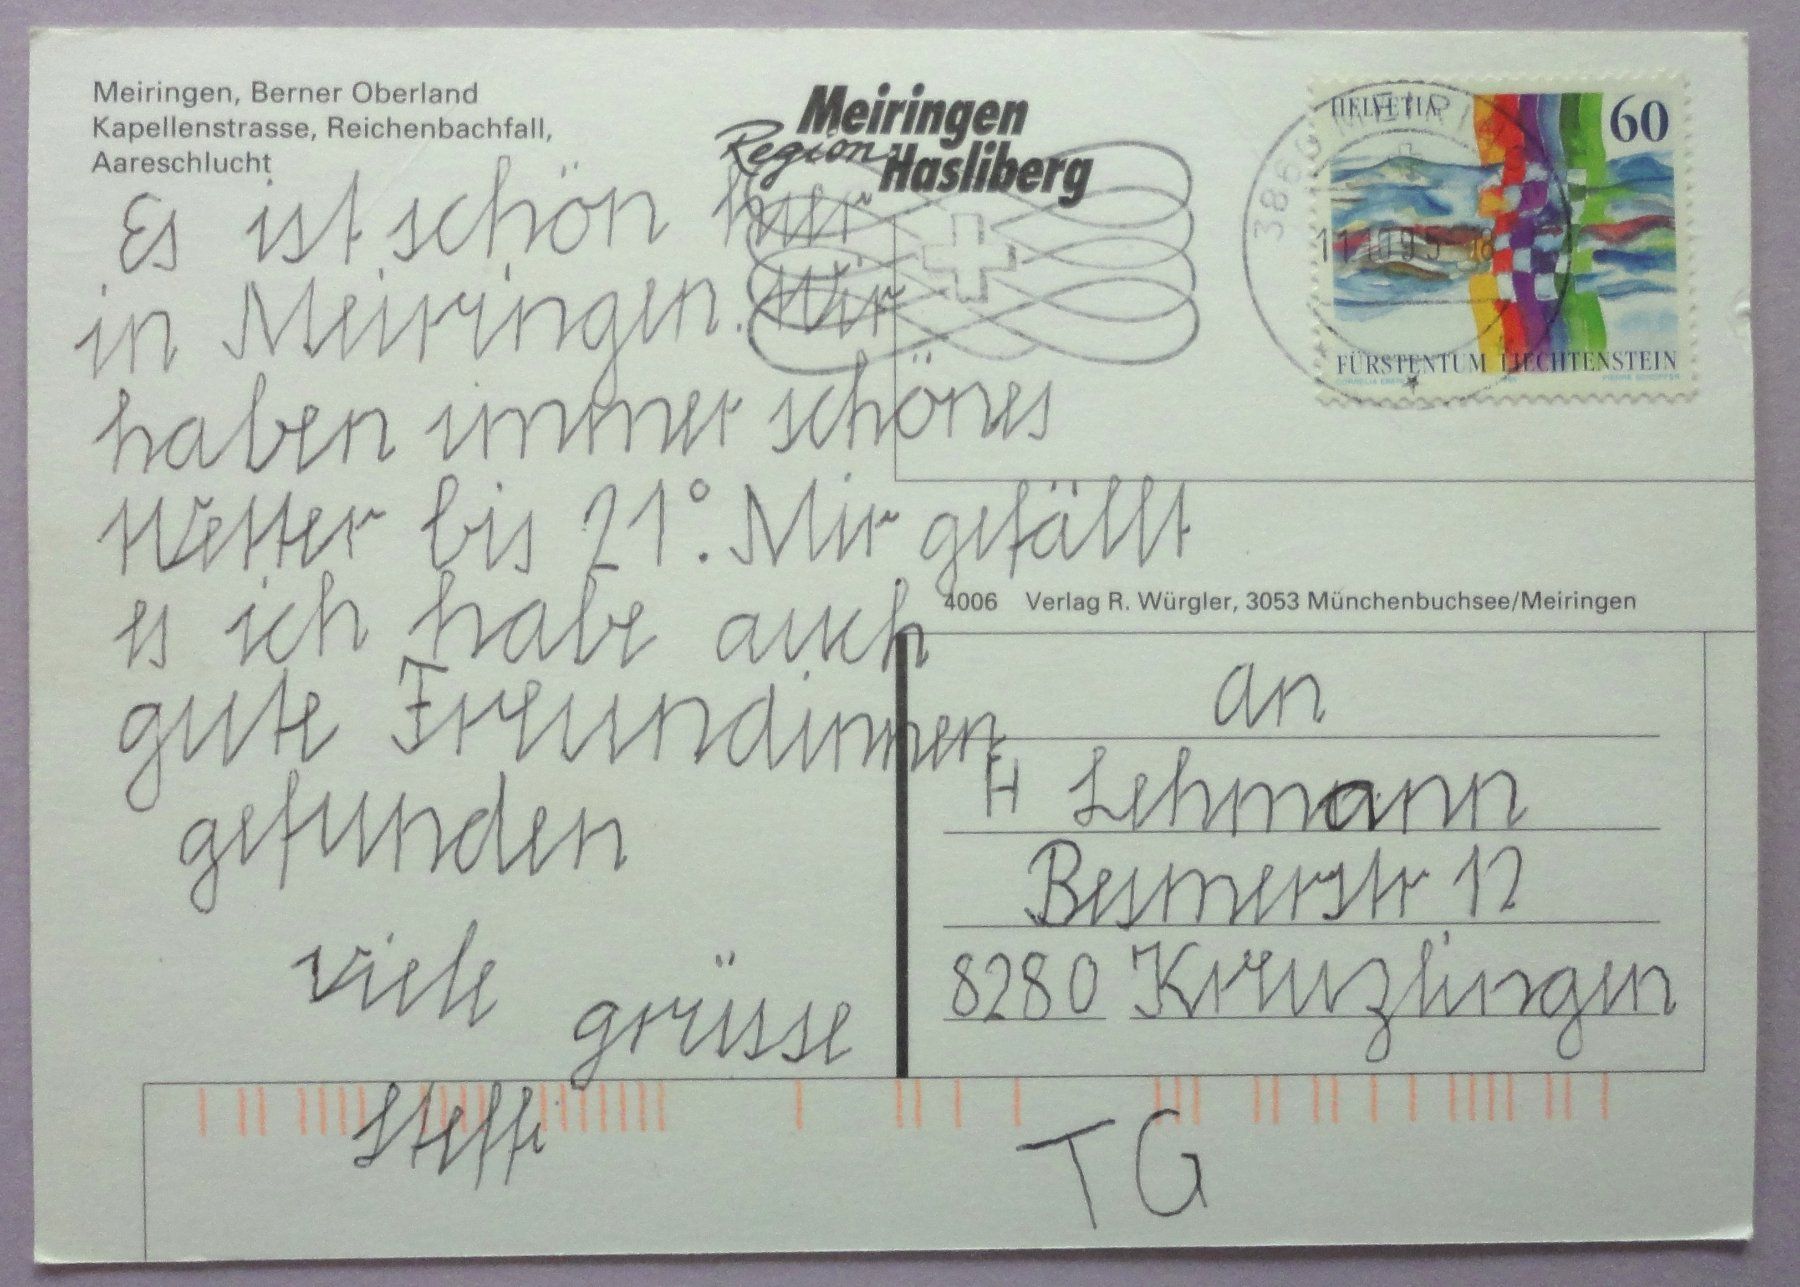 Meiringen, Berner Oberland
Kapellenstrasse, Reichenbachfall,
Aareschlucht
Meiringen
Region Hasliberg
HELVETIA 60
3860 MEIRIN
11.10.95-18
FÜRSTENTUM LIECHTENSTEIN
Es ist schön hier
in Meiringen. Wir
haben immer schönes
Wetter bis 21°. Mir gefällt
es ich habe auch
gute Freundinnen
gefunden
viele
grüsse
Steffi
4006 Verlag R. Würgler, 3053 Münchenbuchsee/Meiringen
an
H Lehmann
Besmerstr 12
8280 Kreuzlingen
TG